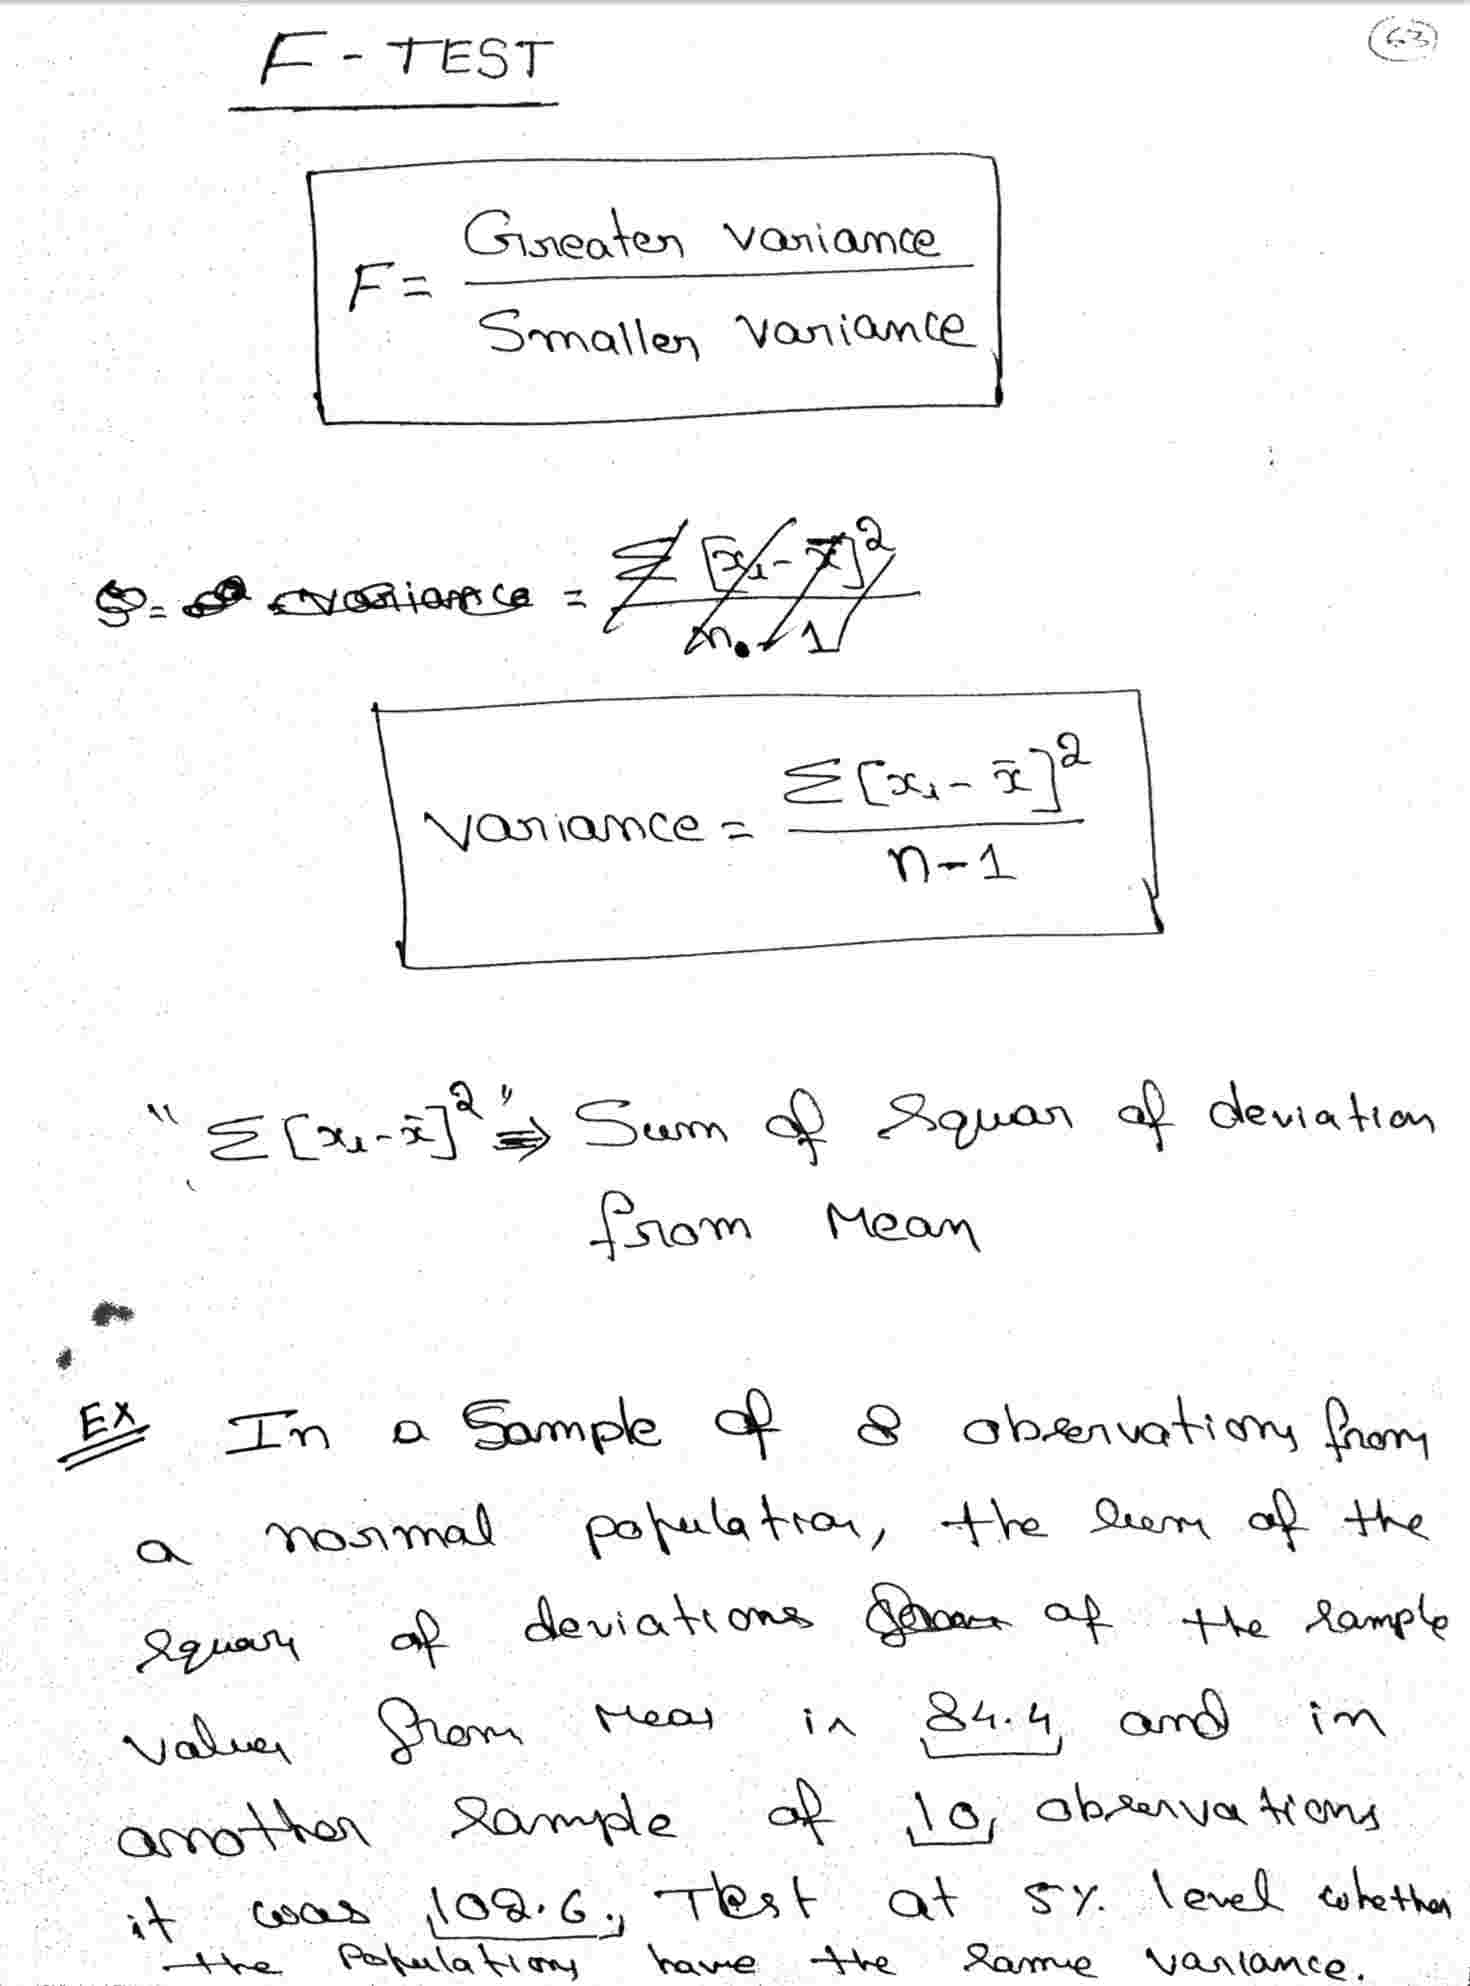 63
F - TEST
F = Greater variance / Smaller variance
variance = Σ [xi - x̄]² / n - 1
variance = Σ [xi - x̄]² / n - 1
" Σ [xi - x̄]² " ⇒ Sum of Squar of deviation
from Mean
Ex In a Sample of 8 observations from
a normal population, the sum of the
square of deviations of the sample
values from mean is 84.4 and in
another sample of 10 observations
it was 102.6. Test at 5% level whether
the populations have the same variance.